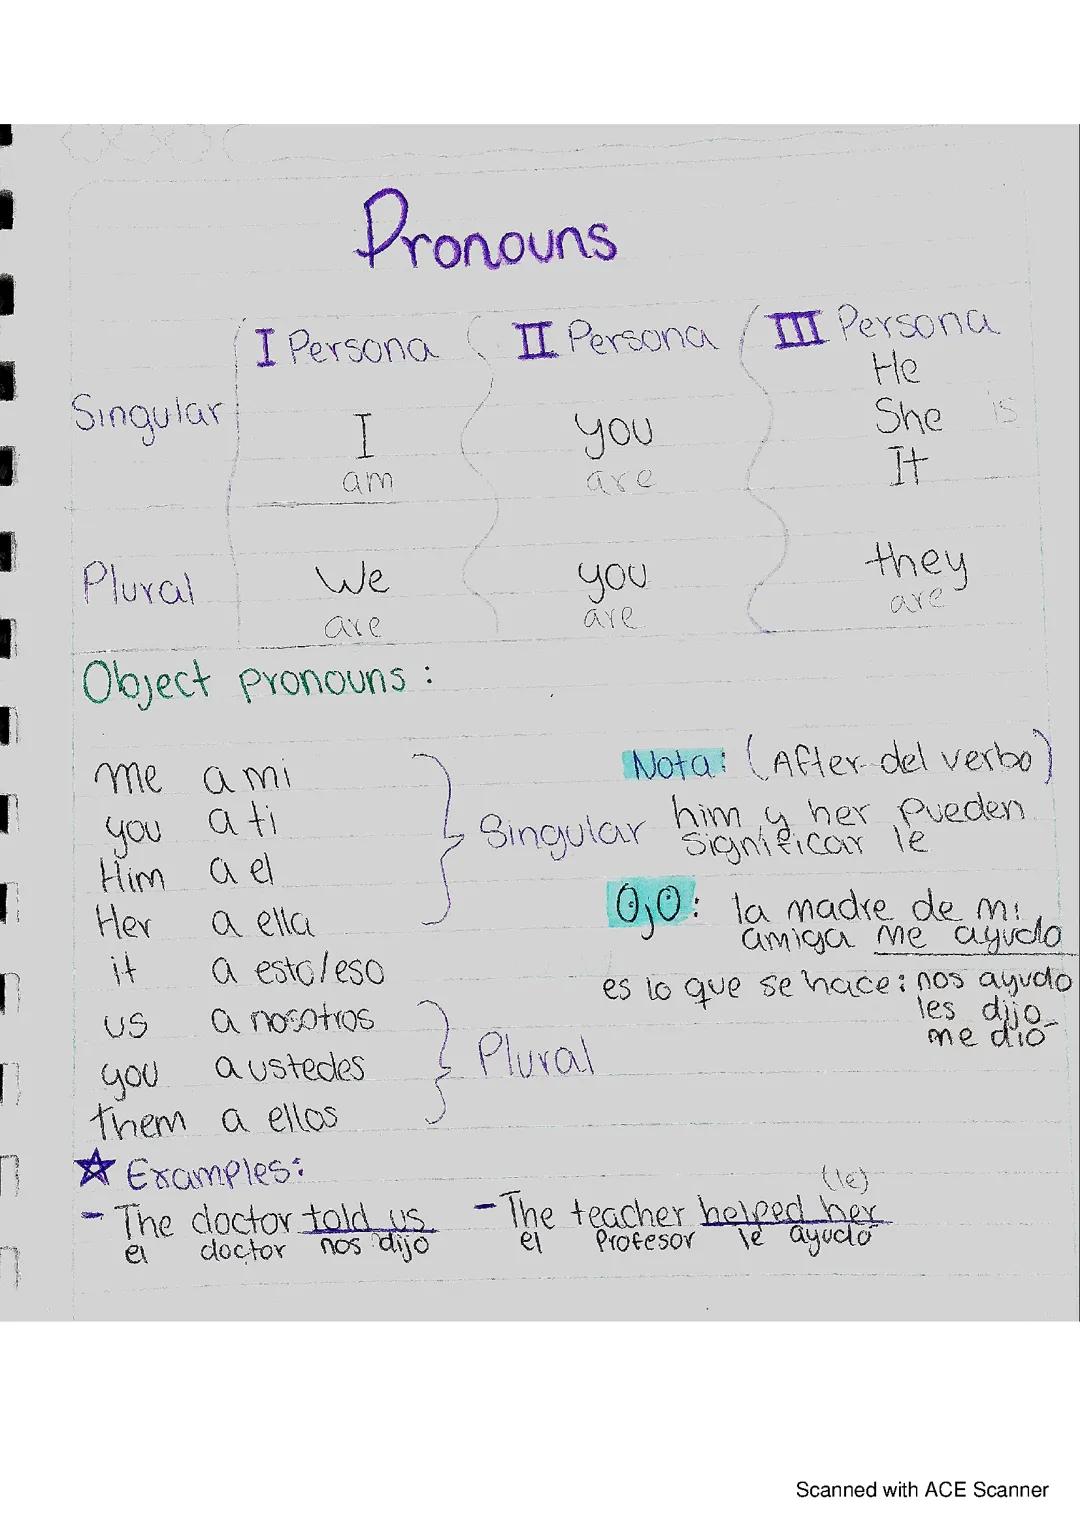 Pronouns
I Persona II Persona III Persona
He
Singular I you She is
It
am are
Plural We you they
are are are
Object pronouns:
me a mi
you a ti
Him a el
Her a ella
it a esto/eso
Singular
us a nosotros
you a ustedes
them a ellos
Plural
Nota: (After del verbo)
him y her pueden
significar le
Ojo: la madre de mi
amiga me ayudo
es lo que se hace: nos ayudo
les dijo
me dio
☆ Examples:
- The doctor told us
el doctor nos dijo
(le)
- The teacher helped her
el Profesor le ayudo
Scanned with ACE Scanner